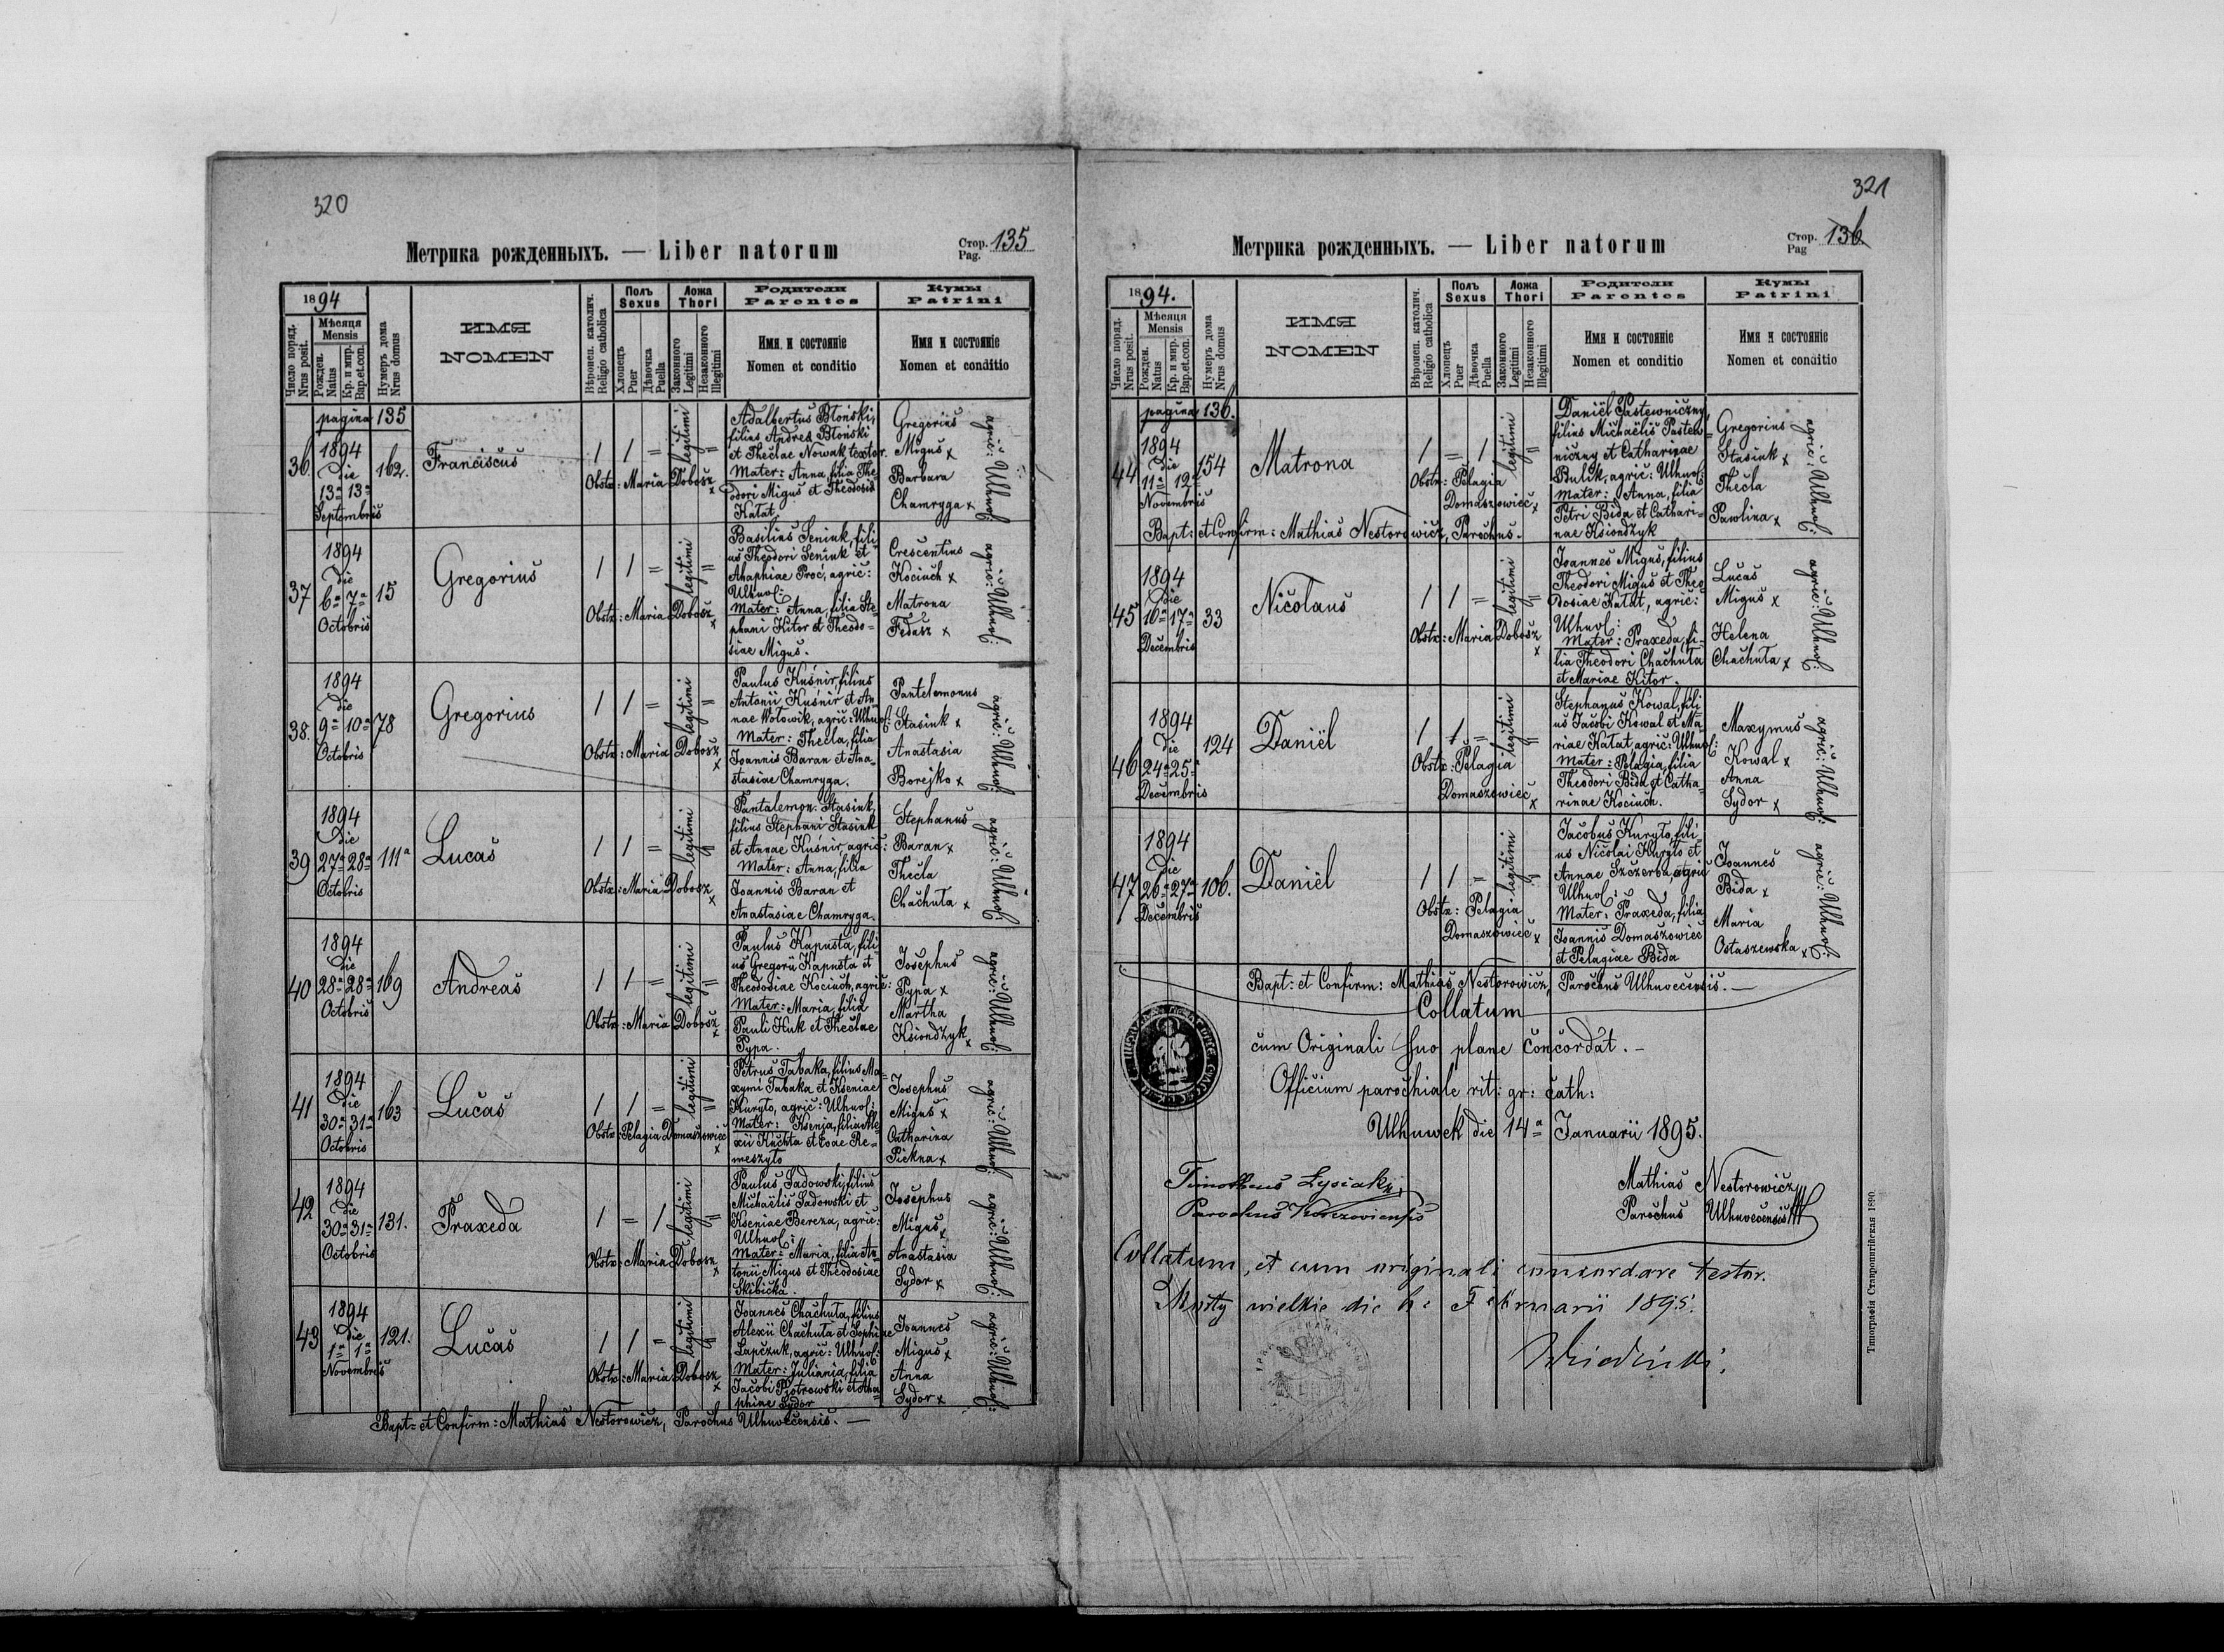 320
Метрика рожденныхъ. — Liber natorum
Стор. Pag. 135
1894
Число поряд. Nrus posit.
Мѣсяця Mensis
Рожден. Natus
Кр. и мир. Bap.et.con.
Нумеръ дома Nrus domus
ИМЯ
NOMEN
Вѣроисп. католич. Religio catholica
Полъ Sexus
Хлопецъ Puer
Дѣвочка Puella
Ложа Thori
Законного Legitimi
Незаконного Illegitimi
Родители
Parentes
Имя и состояніе
Nomen et conditio
Кумы
Patrini
Имя и состояніе
Nomen et conditio
pagina 135
36 1894 die 13a 13a Septembris 162. Franciscus 1 1 = legitimi =
Obstx: Maria Dobosz x
Adalbertus Błoński,
filius Andreä Błoński
et Theclae Nowak textor.
Mater: Anna, filia The-
odori Migus et Theodosiä
Katat
Gregorius
Migus x
Barbara
Chamryga x
agric: Uhnov:
37 1894 die 6a 7a Octobris 15 Gregorius 1 1 = legitimi =
Obstx: Maria Dobosz x
Basilius Seniuk, fili-
us Theodori Seniuk et
Ahaphiae Proć, agric:
Ulhuv:
Mater: Anna, filia Ste-
phani Kitor et Theodo-
siae Migus.
Crescentius
Kociuch x
Matrona
Fedasz x
agric: Ulhuv:
38. 1894 die 9a 10a Octobris 78 Gregorius 1 1 = legitimi =
Obstx: Maria Dobosz x
Paulus Kuśnir, filius
Antonii Kuśnir et An-
nae Wołowik, agric: Ulhuv:
Mater: Thecla, filia
Joannis Baran et Ana-
stasiae Chamryga.
Pantelemonus
Stasiuk x
Anastasia
Borejko x
agric: Ulhuv:
39 1894 Die 27a 28a Octobris 111a Lucas 1 1 = legitimi =
Obstx: Maria Dobosz x
Pantalemon: Stasiuk,
filius Stephani Stasiuk
et Annae Kuśnir, agric:
Mater: Anna, filia
Joannis Baran et
Anastasiae Chamryga.
Stephanus
Baran x
Thecla
Chachuta x
agric: Ulhuv:
40 1894 die 28a 28a Octobris 169 Andreas 1 1 = legitimi =
Obstx: Maria Dobosz x
Paulus Kapusta, fili-
us Gregorii Kapusta et
Theodosiae Kociuch, agric:
Mater: Maria, filia
Pauli Huk et Theclae
Pypa.
Josephus
Pypa x
Martha
Ksiondzyk x
agric: Ulhuv:
41 1894 Die 30a 31a Octobris 163 Lucas 1 1 = legitimi =
Obstx: Pelagia Domaszowiec x
Petrus Tabaka, filius Ma-
xymi Tabaka et Kseniae
Kuryto, agric: Ulhuv:
Mater: Ksenja, filia Ale-
xii Kuchta et Evae Re-
meszyto
Josephus
Migus x
Catharina
Pickna x
agric: Ulhuv:
42 1894 Die 30a 31a Octobris 131. Praxeda 1 = 1 legitimi =
Obstx: Maria Dobosz x
Paulus Sadowski, filius
Michaëlis Sadowski et
Kseniae Bereza, agric:
Ulhuv:
Mater: Maria, filia An-
tonii Migus et Theodosiae
Skibicka.
Josephus
Migus x
Anastasia
Sydor x
agric: Ulhuv:
43 1894 Die 1a 1a Novembris 121. Lucas 1 1 = legitimi =
Obstx: Maria Dobosz x
Joannes Chachuta, filius
Alexii Chachuta et Sophiae
Łapczuk, agric: Ulhuv:
Mater: Juliania, filia
Jacobi Piotrowski et Aha-
phiae Sydor
Joannes
Migus x
Anna
Sydor x
agric: Ulhuv:
Bapt: et Confirm: Mathias Nestorowicz, Parochus Ulhuvecensis. —
321
Метрика рожденныхъ. — Liber natorum
Стор. Pag 136
1894.
Число поряд. Nrus posit.
Мѣсяця Mensis
Рожден. Natus
Кр. и мир. Bap.et.con.
Нумеръ дома Nrus domus
ИМЯ
NOMEN
Вѣроисп. католич. Religio catholica
Полъ Sexus
Хлопецъ Puer
Дѣвочка Puella
Ложа Thori
Законного Legitimi
Незаконного Illegitimi
Родители
Parentes
Имя и состояніе
Nomen et conditio
Кумы
Patrini
Имя и состояніе
Nomen et conditio
pagina 136.
44 1894 Die 11a 12a Novembris 154 Matrona 1 = 1 legitimi =
Obstx: Pelagia
Domaszowiec x
Daniël Pastewniczny,
filius Michaëlis Pastew-
niczny et Catharinae
Bulik, agric: Ulhuv:
Mater: Anna, filia
Petri Bida et Cathari-
nae Ksiondzyk
Gregorius
Stasiuk x
Thecla
Pawlina x
agric: Ulhuv:
Bapt: et Confirm: Mathias Nestorowicz, Parochus.
45 1894 Die 16a 17a Decembris 33 Nicolaus 1 1 = legitimi =
Obstx: Maria Dobosz x
Joannes Migus, filius
Theodori Migus et Theo-
dosiae Katat, agric:
Ulhuv:
Mater: Praxeda, fi-
lia Theodori Chachuta
et Mariae Kitor.
Lucas
Migus x
Helena
Chachuta x
agric: Ulhuv:
46 1894 Die 24a 25a Decembris 124 Daniël 1 1 = legitimi =
Obstx: Pelagia
Domaszowiec x
Stephanus Kowal, fili-
us Jacobi Kowal et Ma-
riae Katat, agric: Ulhuv:
Mater: Pelagia, filia
Theodori Bida et Catha-
rinae Kociuch.
Maxymus
Kowal x
Anna
Sydor x
agric: Ulhuv:
47 1894 Die 26a 27a Decembris 106. Daniël 1 1 = legitimi =
Obstx: Pelagia
Domaszowiec x
Jacobus Kuryto, fili-
us Nicolai Kuryto et
Annae Szczerba, agric
Ulhuv:
Mater: Praxeda, filia
Joannis Domaszowiec
et Pelagiae Bida
Joannes
Bida x
Maria
Ostaszewska x
agric: Ulhuv:
Bapt: et Confirm: Mathias Nestorowicz, Parochus Ulhuvecensis. —
Collatum
cum Originali suo plane concordat. —
Officium parochiale rit: gr: cath:
Ulhuwek die 14a Januarii 1895.
Mathias Nestorowicz
Parochus Ulhuvecensis
Timotheus Łysiak
Parochus Korczoviensis
Collatum, et cum originali concordare testor.
Mosty wielkie die Februarii 1895.
Типографія Ставропигійская 1890.